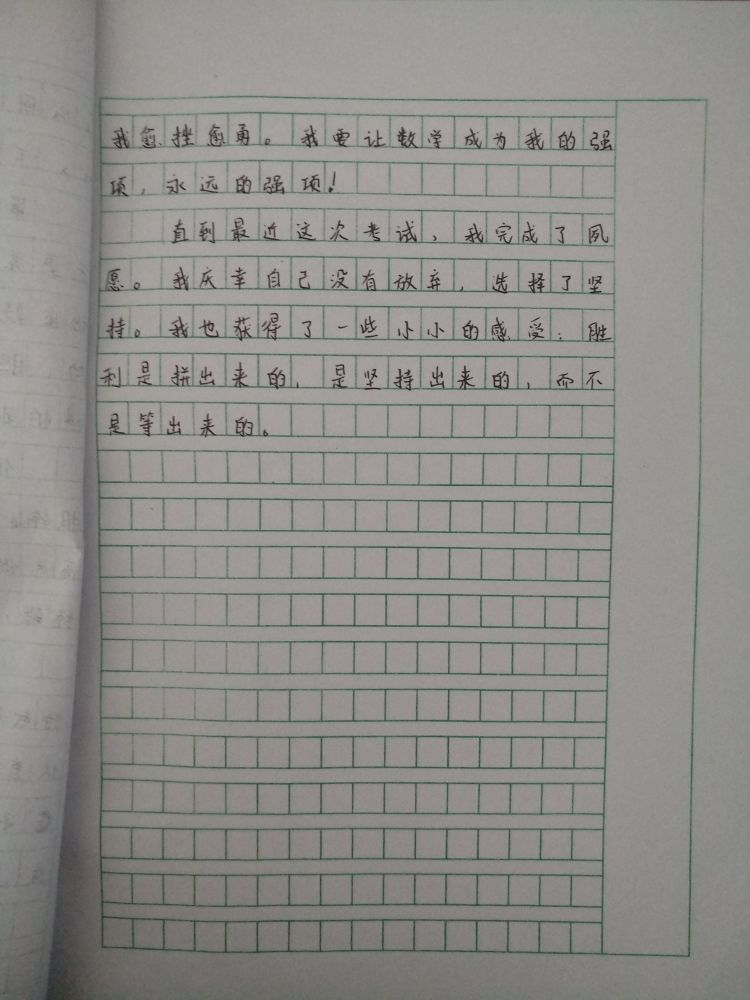 我愈挫愈勇。我要让数学成为我的强
项，永远的强项！
直到最近这次考试，我完成了夙
愿。我庆幸自己没有放弃，选择了坚
持。我也获得了一些小小的感受：胜
利是拼出来的，是坚持出来的，而不
是等出来的。